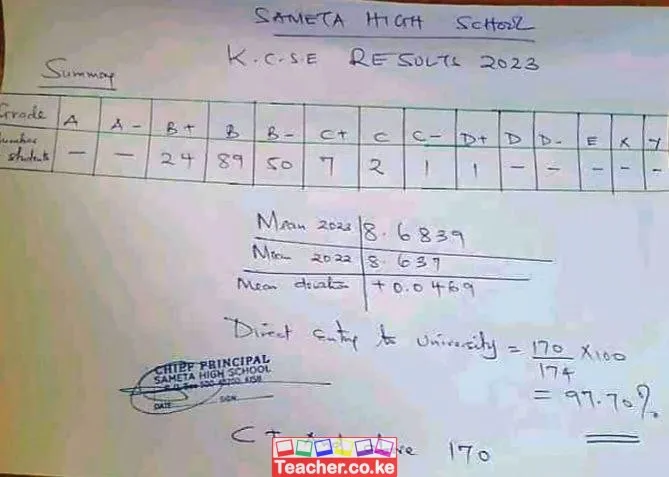 SAMETA HIGH SCHOOL
K.C.S.E RESULTS 2023
Summary
Grade A A- B+ B B- C+ C C- D+ D D- E X Y
Number students — — 24 89 50 7 2 1 1 - - - - -
Mean 2023 8.6839
Mean 2022 8.637
Mean deviation +0.0469
Direct entry to University = 170/174 X100
= 97.70%
CHIEF PRINCIPAL
SAMETA HIGH SCHOOL
DATE SIGN
C+ 170
Teacher.co.ke